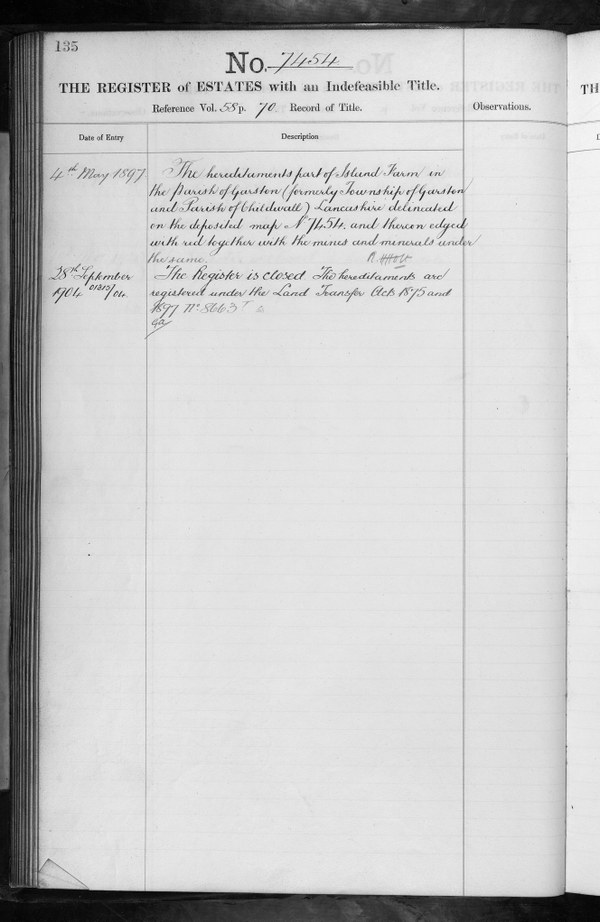 135
No. 7454
THE REGISTER of ESTATES with an Indefeasible Title.
Reference Vol. 58 p. 70. Record of Title.
Observations.
Date of Entry
Description
4th May 1897
The hereditaments part of Island Farm in
the Parish of Garston (formerly Township of Garston
and Parish of Childwall) Lancashire delineated
on the deposited map No 7454. and thereon edged
with red together with the mines and minerals under
the same.
28th September
1904
The Register is closed The hereditaments are
registered under the Land Transfer Acts 1875 and
1897 No. 8663
TH